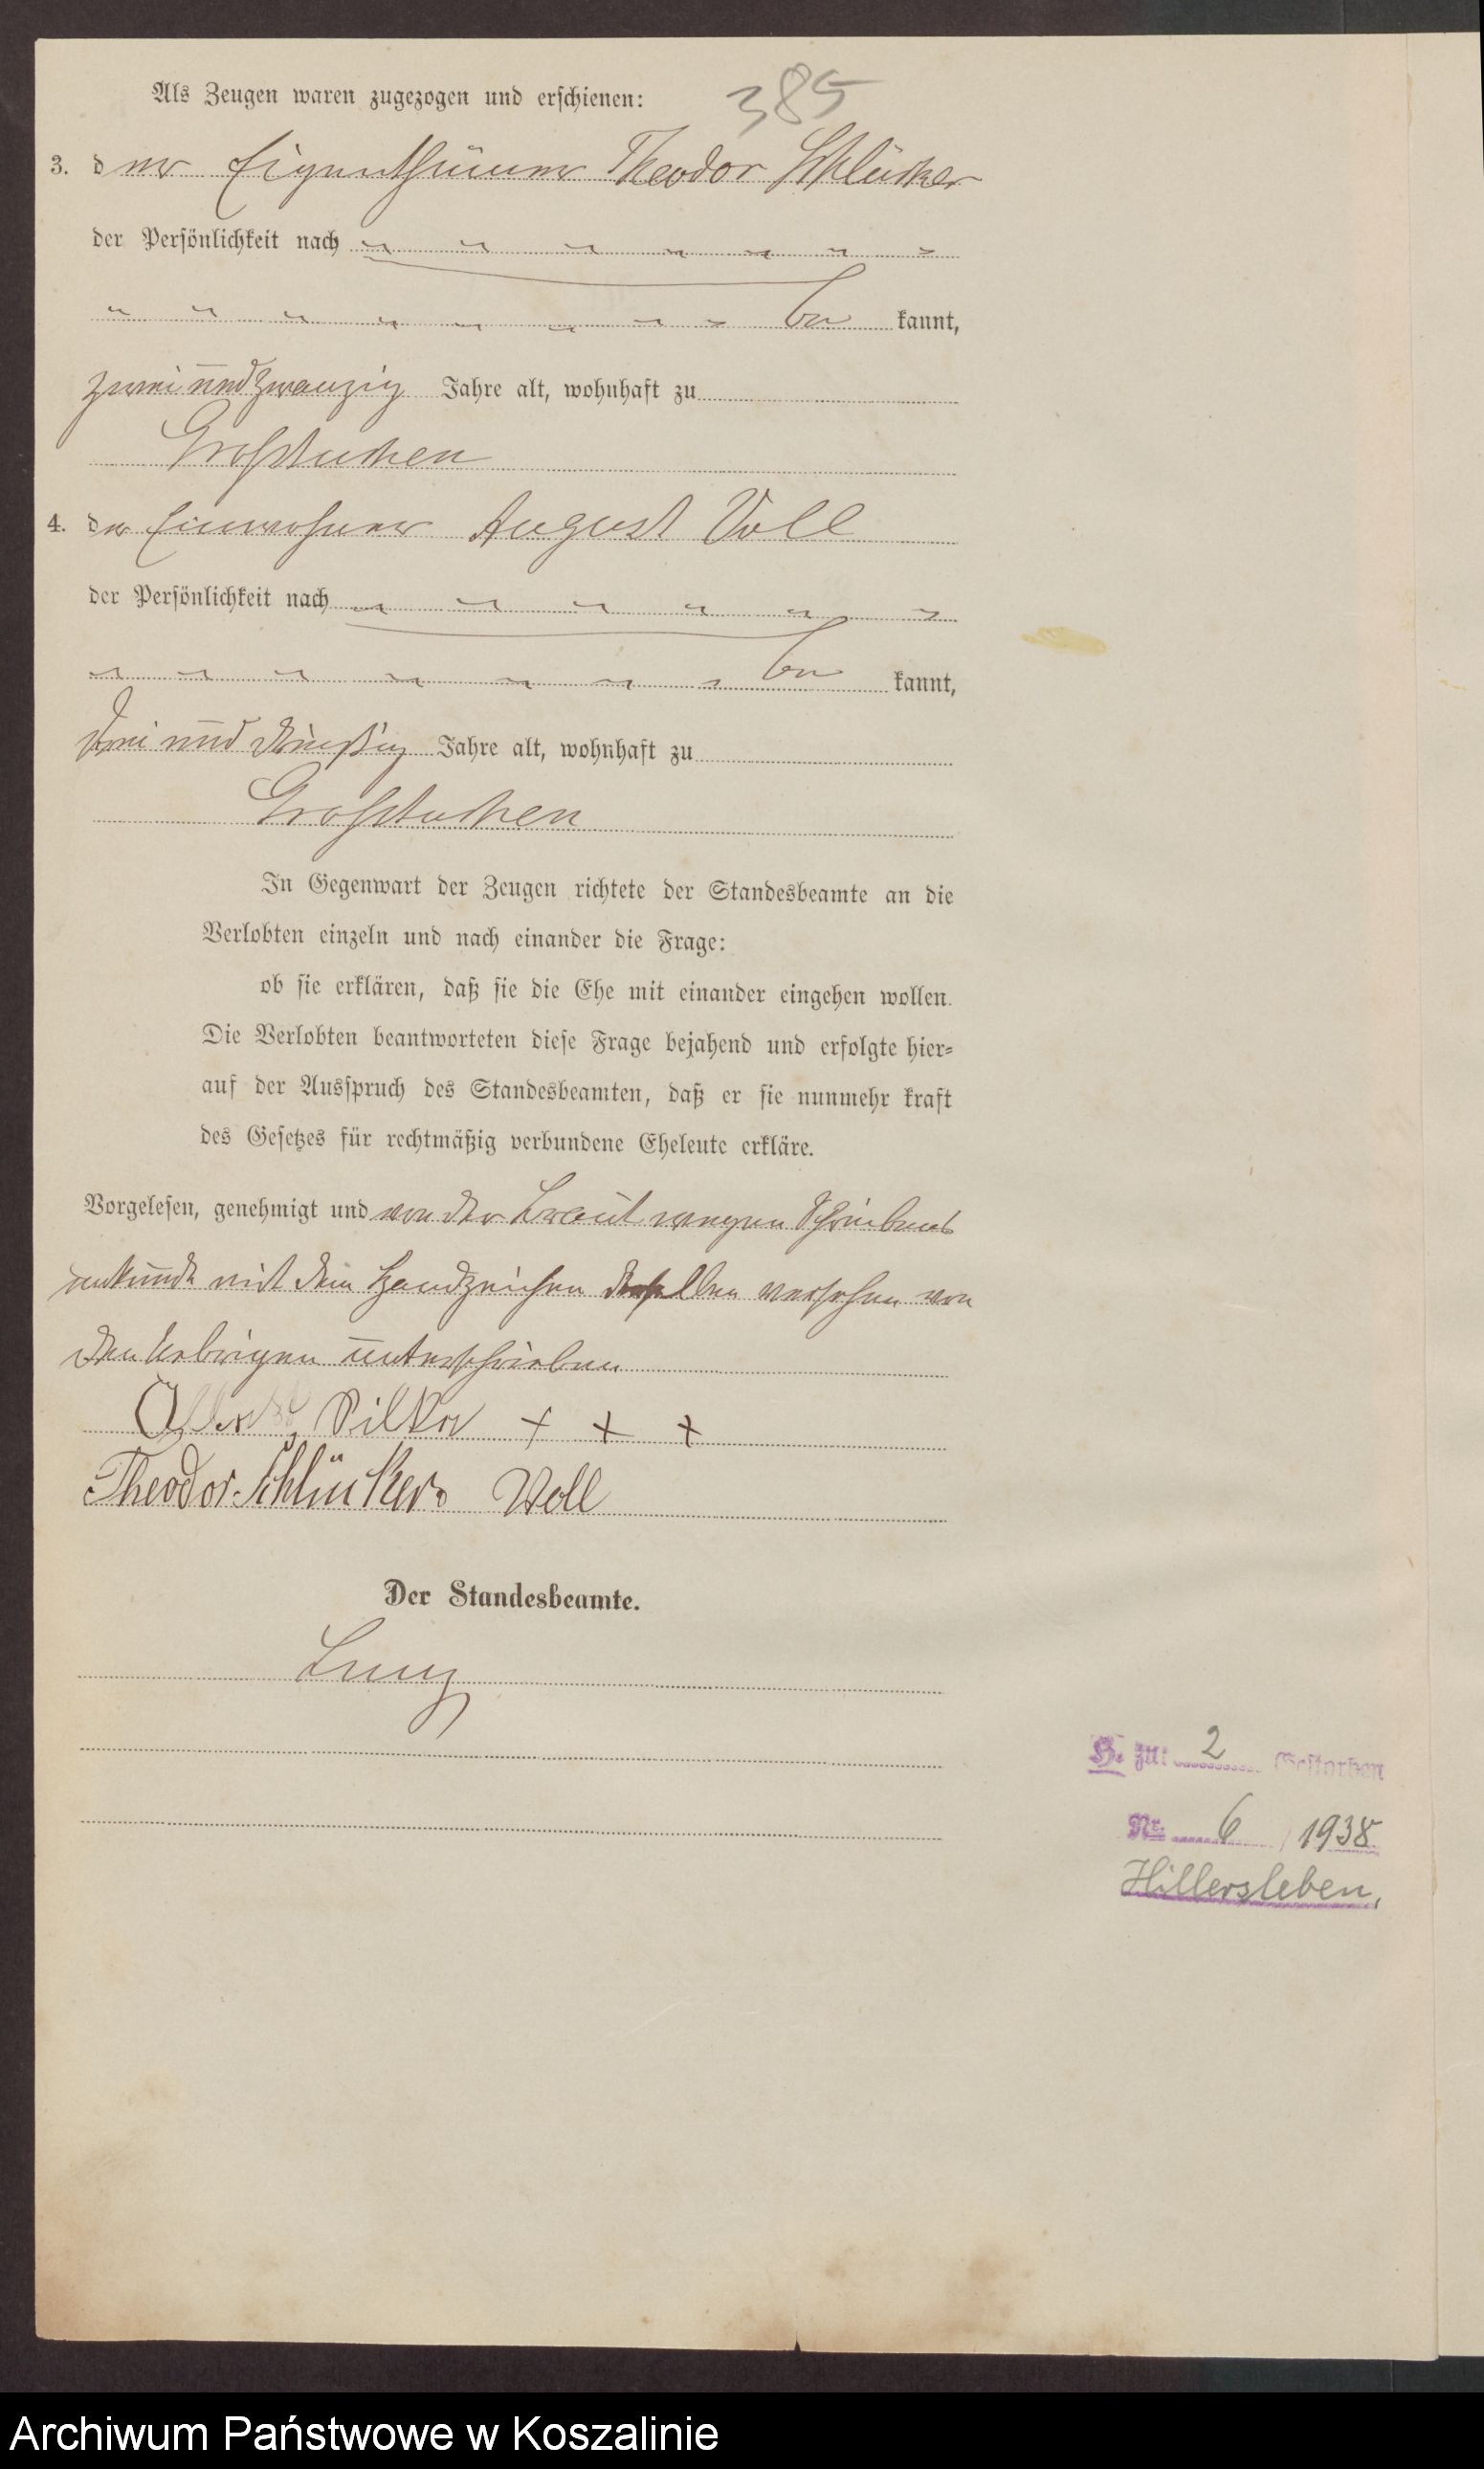 385
Als Zeugen waren zugezogen und erschienen:
3. der Eigenthümer Theodor Schlücker
der Persönlichkeit nach
be kannt,
zwei und zwanzig Jahre alt, wohnhaft zu
Großtuchen
4. der Einwohner August Voll
der Persönlichkeit nach
be kannt,
drei und dreißig Jahre alt, wohnhaft zu
Großtuchen
In Gegenwart der Zeugen richtete der Standesbeamte an die
Verlobten einzeln und nach einander die Frage:
ob sie erklären, daß sie die Ehe mit einander eingehen wollen.
Die Verlobten beantworteten diese Frage bejahend und erfolgte hier=
auf der Ausspruch des Standesbeamten, daß er sie nunmehr kraft
des Gesetzes für rechtmäßig verbundene Eheleute erkläre.
Vorgelesen, genehmigt und von der Braut wegen Schreibens
unkunde mit dem Handzeichen derselben versehen von
den Uebrigen unterschrieben
Pilkor + + +
Theodor Schlücker. Woll
Der Standesbeamte.
H. zu: 2 Gestorben
Nr. 6 / 1938
Hillersleben,
Archiwum Państwowe w Koszalinie